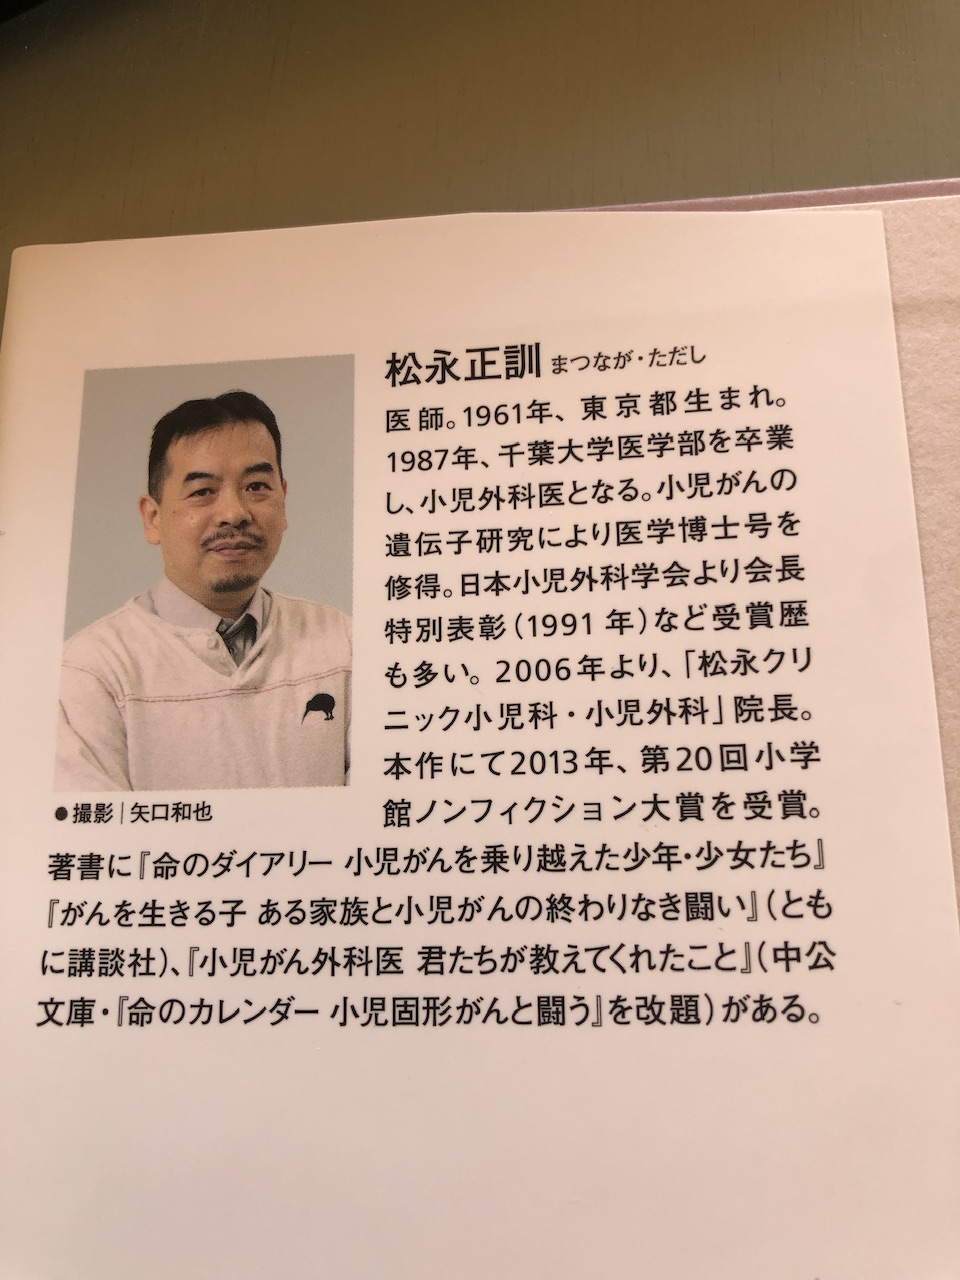 松永正訓 まつなが・ただし
医師。1961年、東京都生まれ。
1987年、千葉大学医学部を卒業
し、小児外科医となる。小児がんの
遺伝子研究により医学博士号を
修得。日本小児外科学会より会長
特別表彰(1991年)など受賞歴
も多い。2006年より、「松永クリ
ニック小児科・小児外科」院長。
本作にて2013年、第20回小学
館ノンフィクション大賞を受賞。
●撮影|矢口和也
著書に『命のダイアリー 小児がんを乗り越えた少年・少女たち』
『がんを生きる子 ある家族と小児がんの終わりなき闘い』(とも
に講談社)、『小児がん外科医 君たちが教えてくれたこと』(中公
文庫・『命のカレンダー 小児固形がんと闘う』を改題)がある。